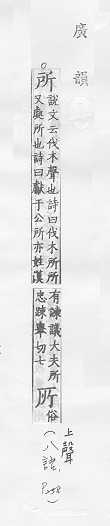 廣韻
所
説文云伐木聲也詩曰伐木所所
又處所也詩曰獻于公所亦姓漢
有諫議大夫所
忠踈舉切七
所
俗
上聲
(八語,